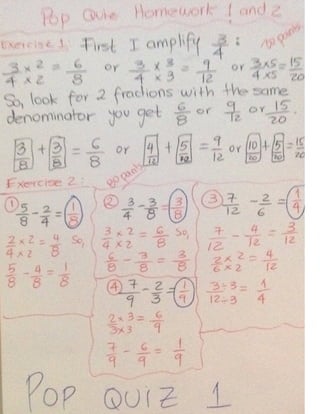 Pop Quiz Homework 1 and 2
Exercise 1: First I amplify 3/4 :
3/4 × 2/2 = 6/8 or 3/4 × 3/3 = 9/12 or 3×5/4×5 = 15/20
So, look for 2 fractions with the same
denominator you get 6/8 or 9/12 or 15/20.
3/8 + 3/8 = 6/8 or 4/12 + 5/12 = 9/12 or 10/20 + 5/20 = 15/20
Exercise 2:
① 5/8 - 2/4 = 1/8
2/4 × 2/2 = 4/8 So,
5/8 - 4/8 = 1/8
② 3/4 - 3/8 = 3/8
3/4 × 2/2 = 6/8 So,
6/8 - 3/8 = 3/8
③ 7/12 - 2/6 = 1/4
7/12 - 4/12 = 3/12
2×2/6×2 = 4/12
3÷3/12÷3 = 1/4
④ 7/9 - 2/3 = 1/9
2×3/3×3 = 6/9
7/9 - 6/9 = 1/9
POP QUIZ 1